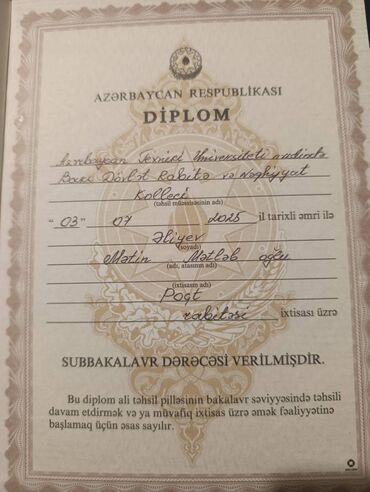 AZƏRBAYCAN RESPUBLİKASI
DİPLOM
Azərbaycan Texniki Universiteti nəzdində
Bakı Dövlət Rabitə və Nəqliyyat
Kolleci
(təhsil müəssisəsinin adı)
"03" 07 2025 il tarixli əmri ilə
Əliyev
(soyadı)
Mətin Mətləb oğlu
(adı, atasının adı)
(ixtisasın adı)
Poçt
rabitəsi ixtisası üzrə
SUBBAKALAVR DƏRƏCƏSİ VERİLMİŞDİR.
Bu diplom ali təhsil pilləsinin bakalavr səviyyəsində təhsili
davam etdirmək və ya müvafiq ixtisas üzrə əmək fəaliyyətinə
başlamaq üçün əsas sayılır.